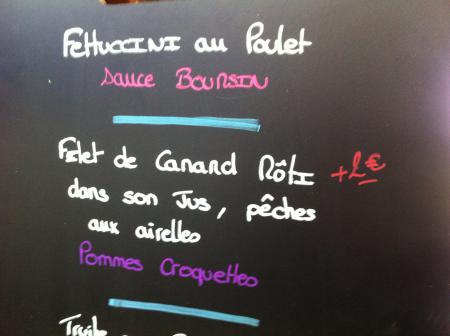 Fettuccini au Poulet
Sauce Boursin
Filet de Canard Rôti +2€
dans son Jus, pêches
aux airelles
Pommes Croquettes
Truite